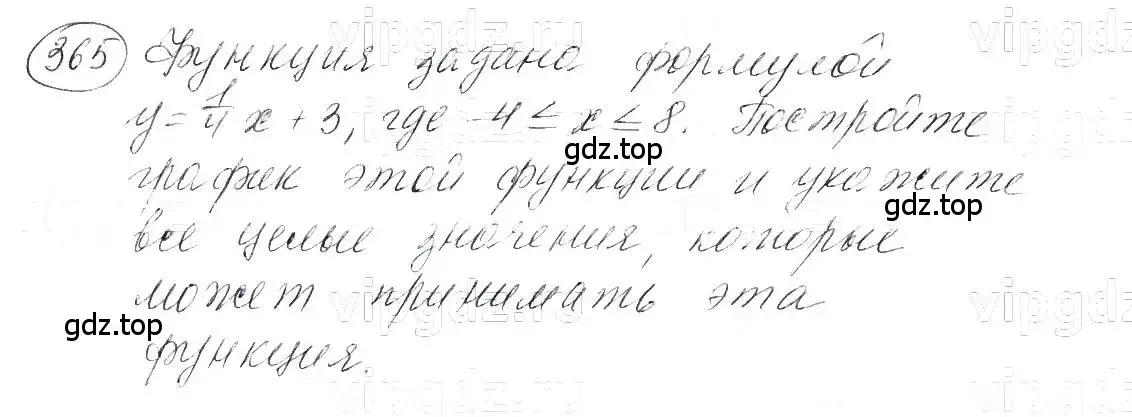 365 Функция задана формулой
y = 1/4 x + 3, где -4 ≤ x ≤ 8. Постройте
график этой функции и укажите
все целые значения, которые
может принимать эта
функция.
gdz.top
gdz.top
gdz.top
vipgdz.ru
vipgdz
vipgdz.ru
vipgdz